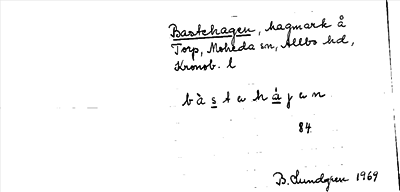 Bastehagen, hagmark å
Torp, Moheda sn, Allbo hd,
Kronob. l
bàstehágen
84
B. Sundgren 1969